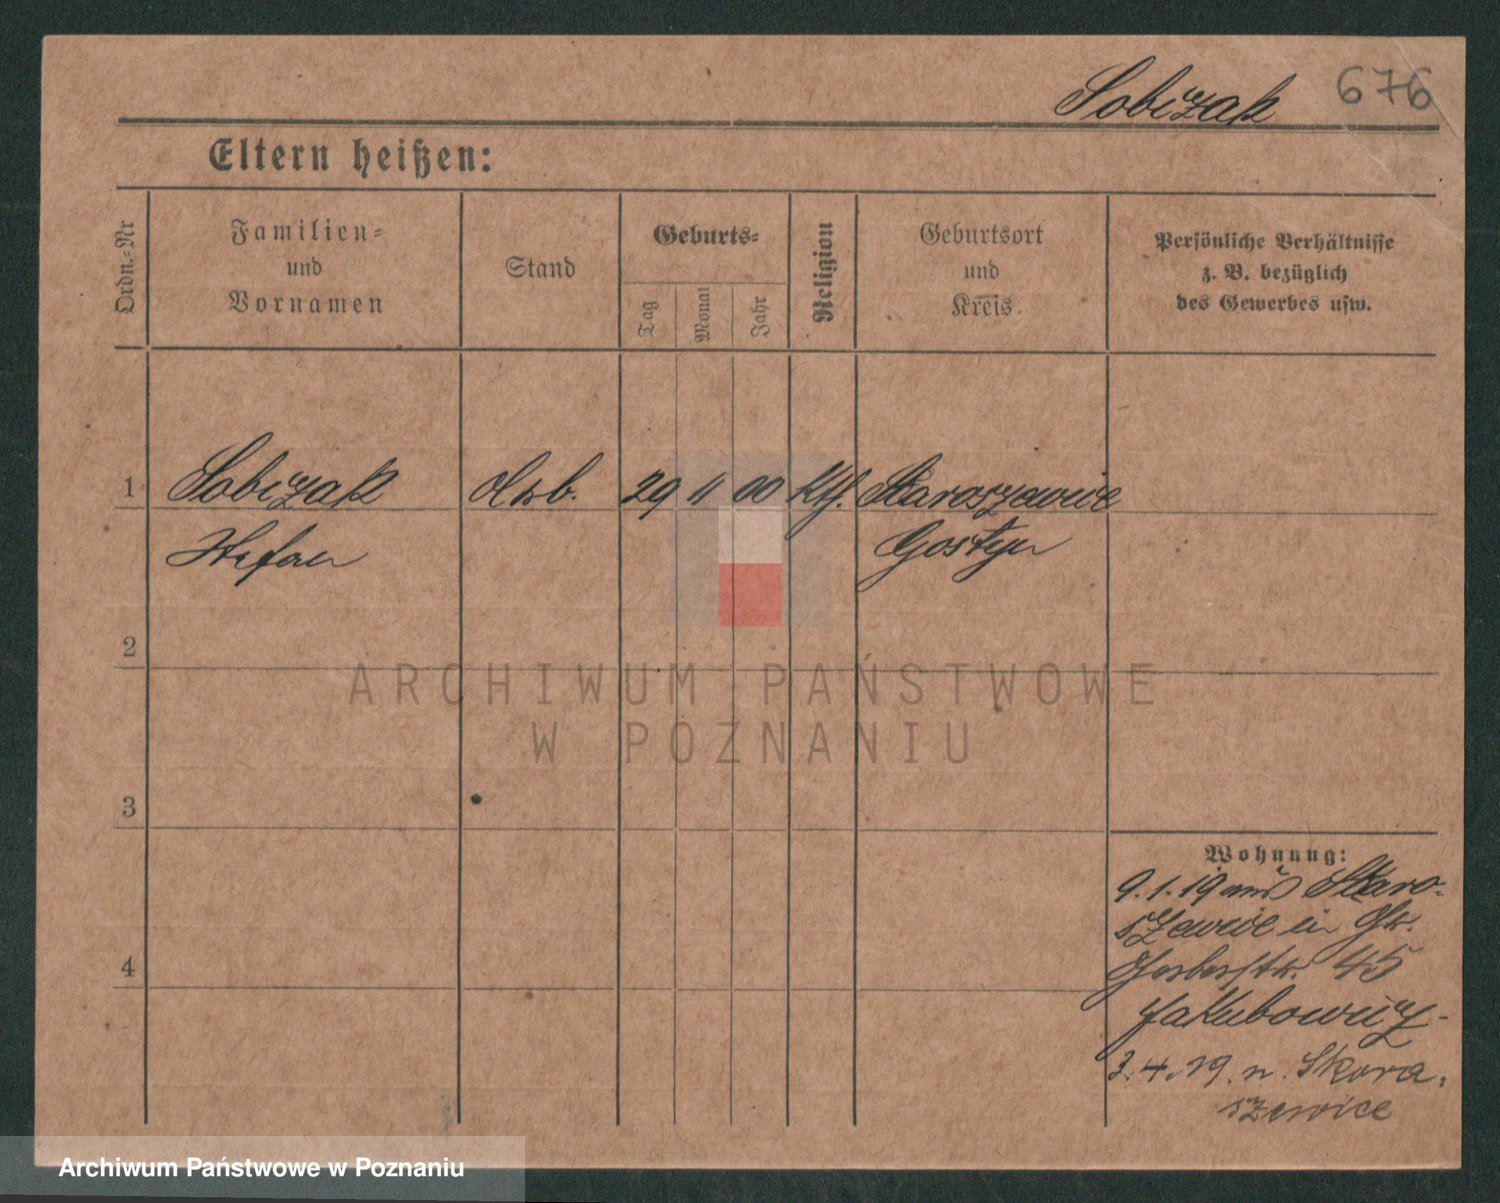 Sobczak 676
Eltern heißen:
Ordn.-Nr
Familien-
und
Vornamen
Stand
Geburts-
Tag
Monat
Jahr
Religion
Geburtsort
und
Kreis.
Persönliche Verhältnisse
z. B. bezüglich
des Gewerbes usw.
1 Sobczak 29 11 00 Kth. Staroszewice
Stefan Gostyn
2
3
4
Wohnung:
9.1.19 aus Staro-
szewice in
45
Jakubowicz
3.4.19. n. Skora-
szewice
ARCHIWUM PAŃSTWOWE
W POZNANIU
Archiwum Państwowe w Poznaniu